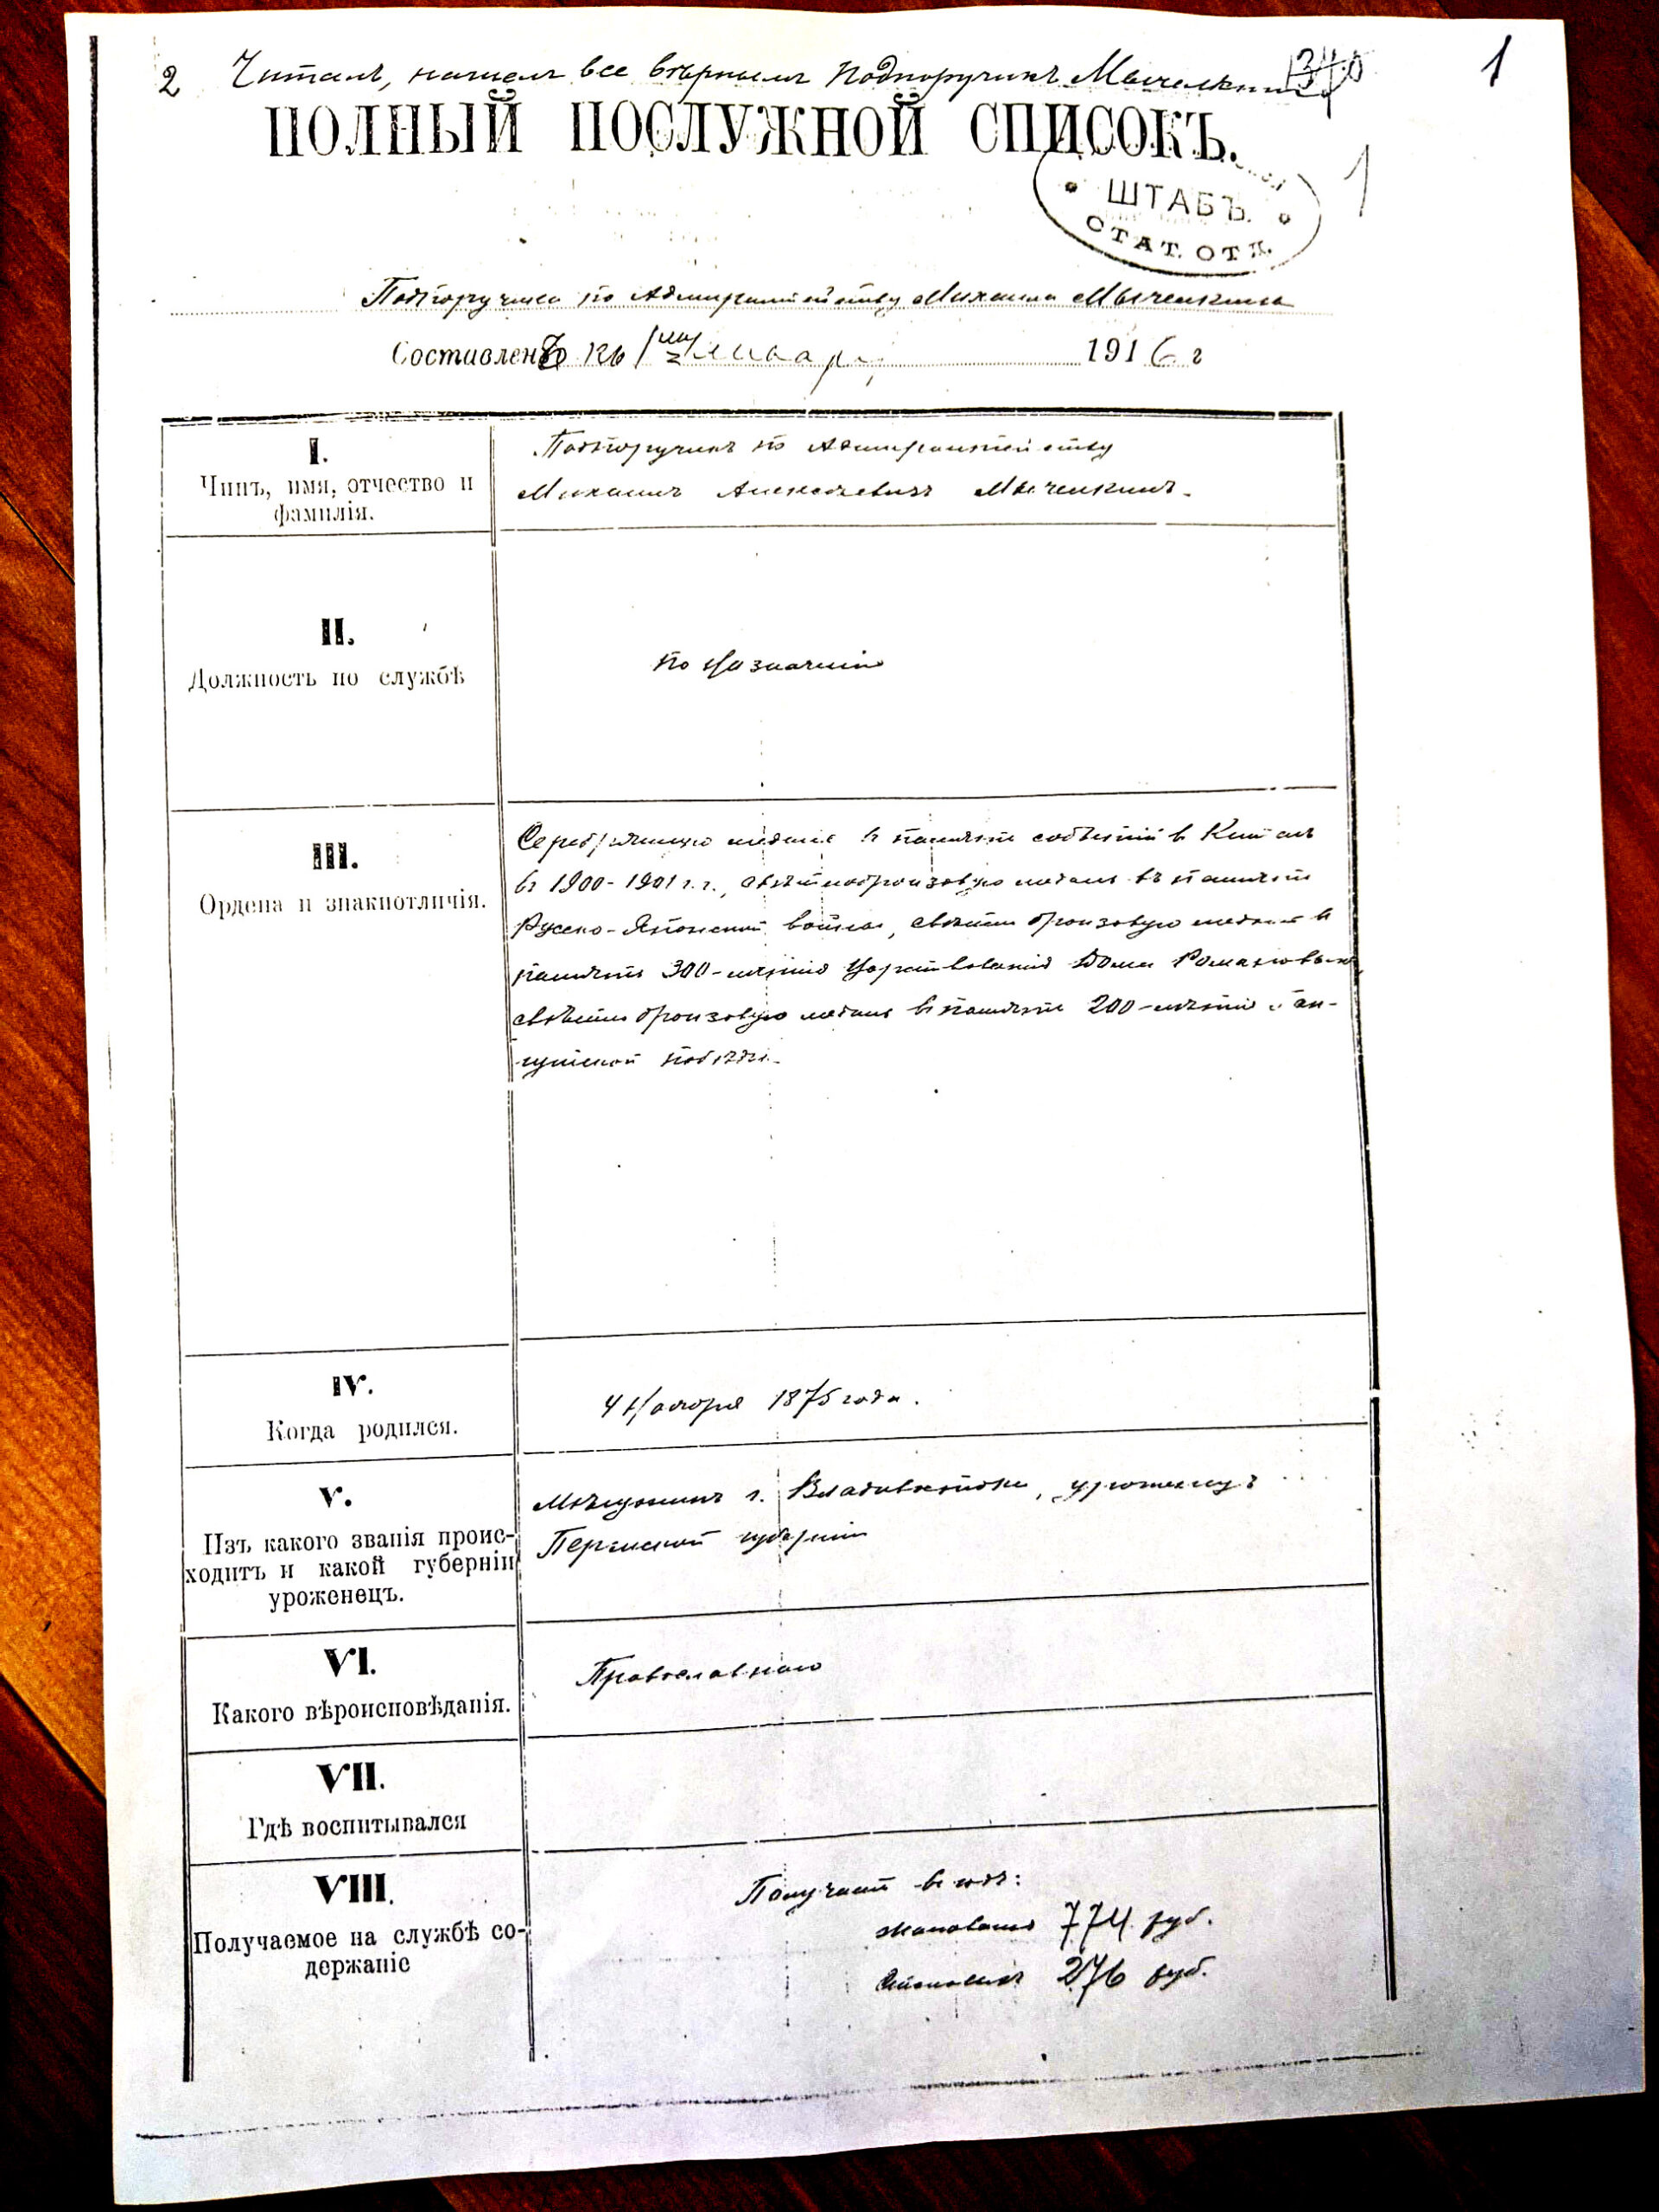 2 Читалъ, нашелъ все вѣрнымъ Подпоручикъ Мыченкинъ
1
ПОЛНЫЙ ПОСЛУЖНОЙ СПИСОКЪ.
1
ШТАБЪ.
СТАТ. ОТД.
Подпоручика по Адмиралтейству Михаила Мыченкина
Составленъ къ 1 Января 1916 г
I.
Чинъ, имя, отчество и
фамилія.
Подпоручикъ по Адмиралтейству
Михаилъ Алексѣевичъ Мыченкинъ.
II.
Должность по службѣ
по назначенію
III.
Ордена и знакиотличія.
Серебрянную медаль въ память событій в Китаѣ
въ 1900-1901 г.г., свѣтлобронзовую медаль въ память
Русско-Японской войны, свѣтло бронзовую медаль въ
память 300-лѣтія Царствованія Дома Романовыхъ,
свѣтло бронзовую медаль въ память 200-лѣтія Ган-
гутской побѣды.
IV.
Когда родился.
4 Ноября 1875 года.
V.
Изъ какого званія проис-
ходитъ и какой губерніи
уроженецъ.
Мѣщанинъ г. Владивостока, уроженецъ
Пермской губерніи
VI.
Какого вѣроисповѣданія.
Православнаго
VII.
Гдѣ воспитывался
VIII.
Получаемое на службѣ со-
держаніе
Получаетъ въ годъ:
жалованья 774 руб.
Столовыхъ 276 руб.